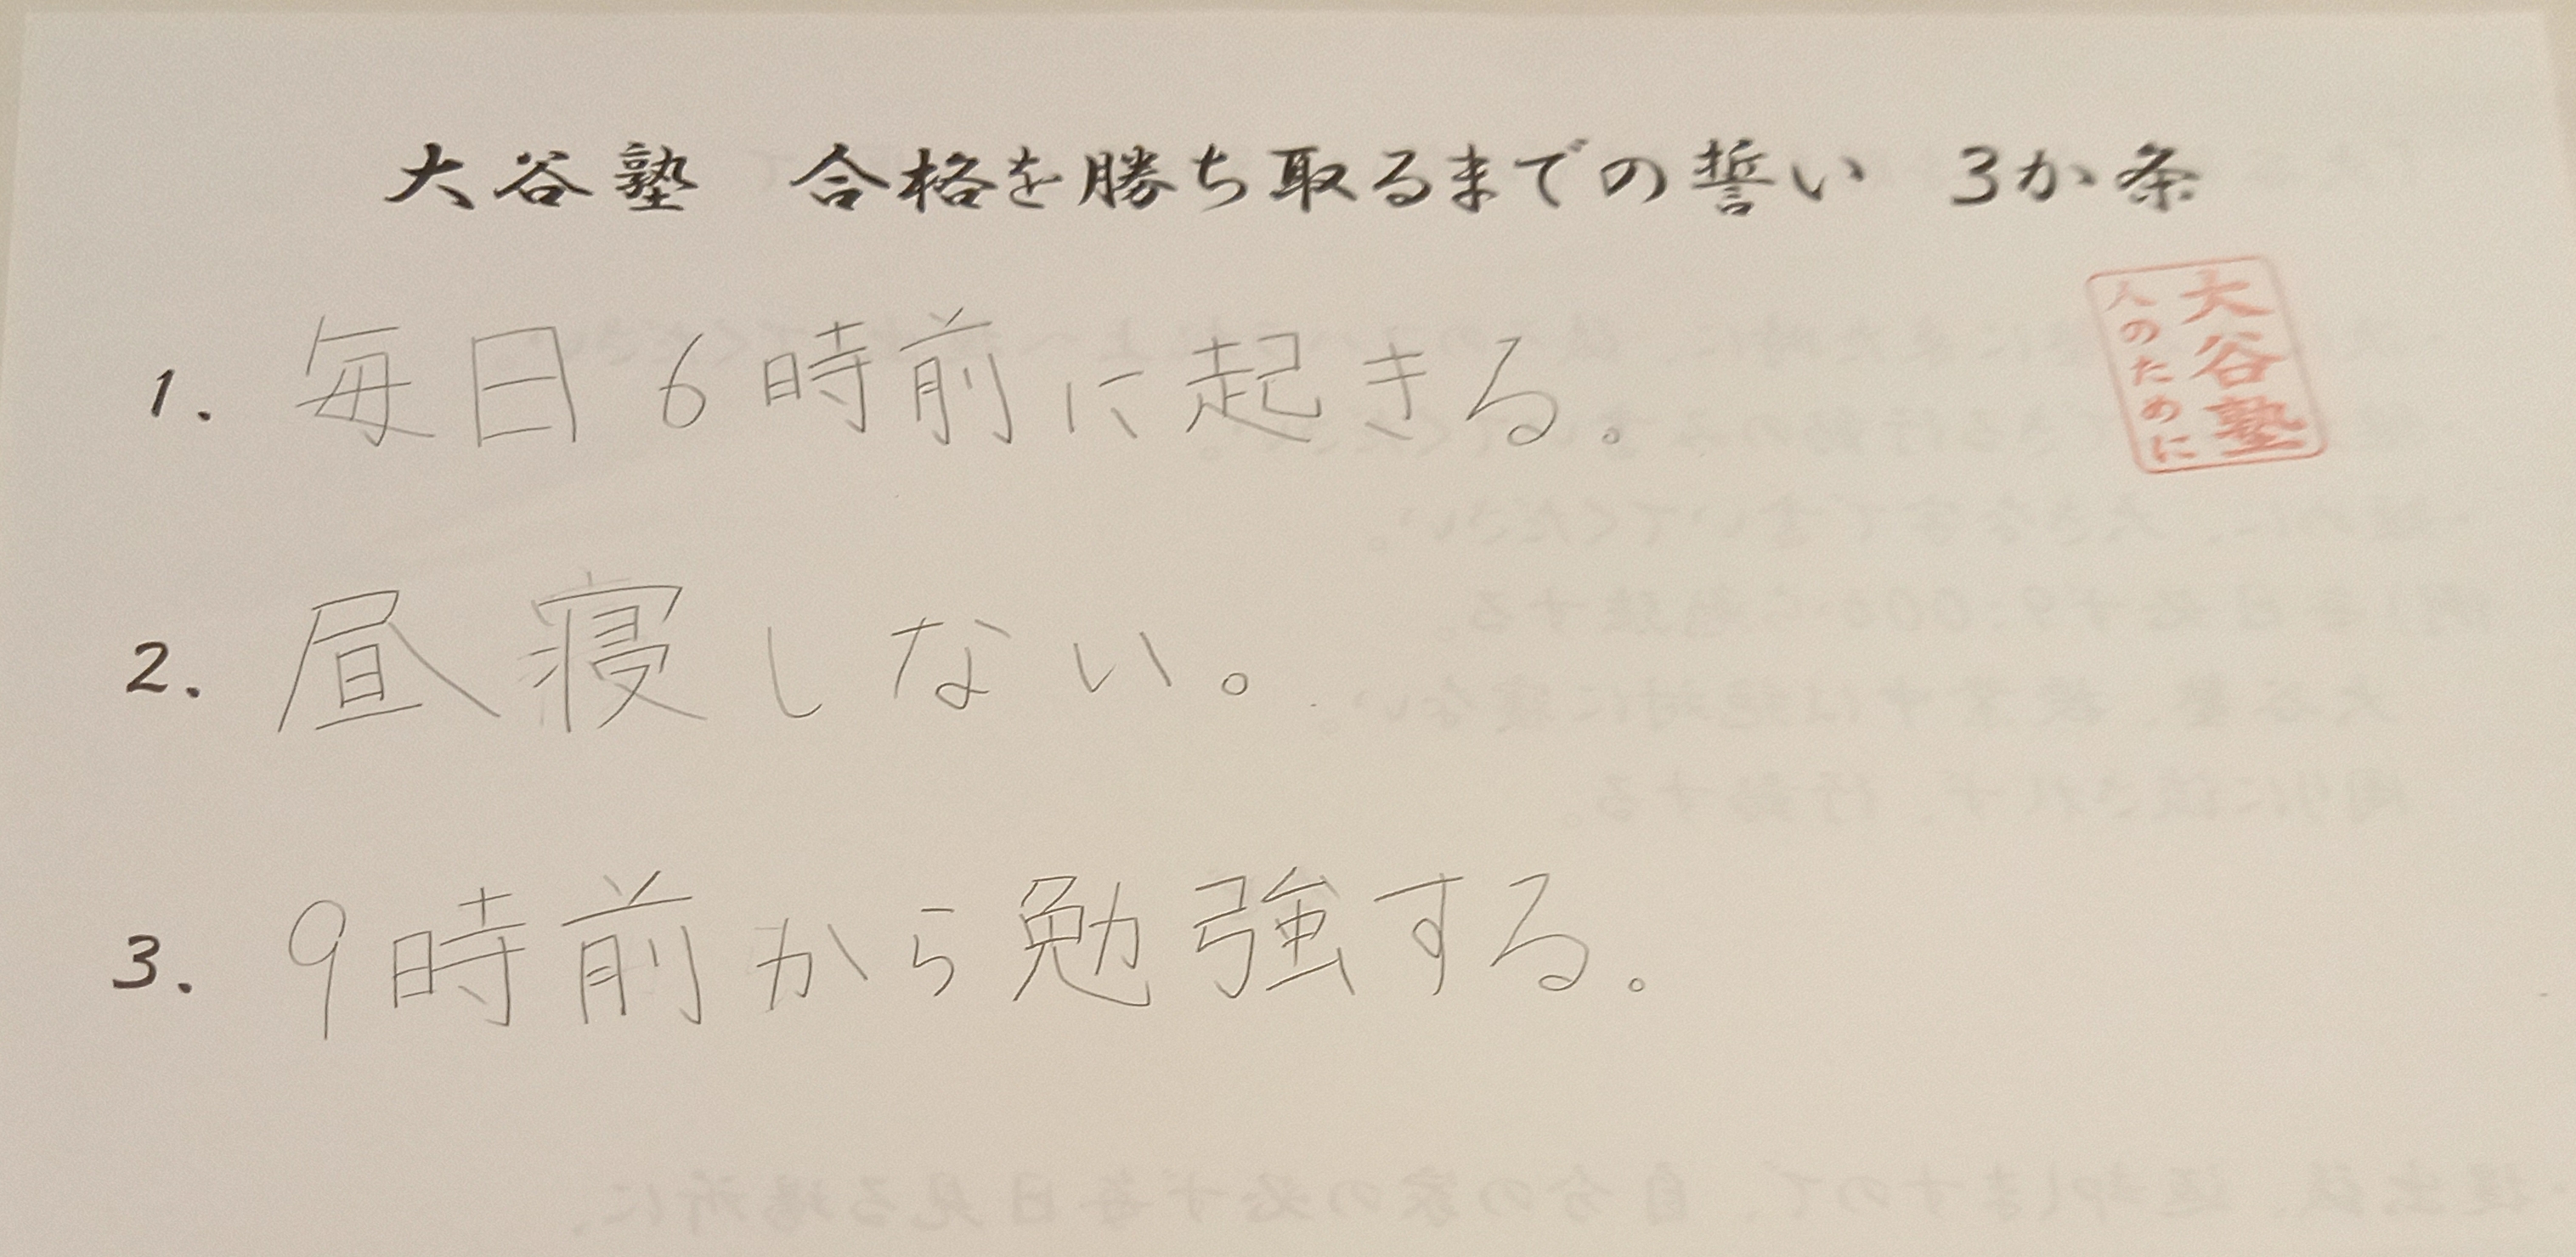 大谷塾　合格を勝ち取るまでの誓い　3か条
大谷塾
人のために
1. 毎日6時前に起きる。
2. 昼寝しない。
3. 9時前から勉強する。